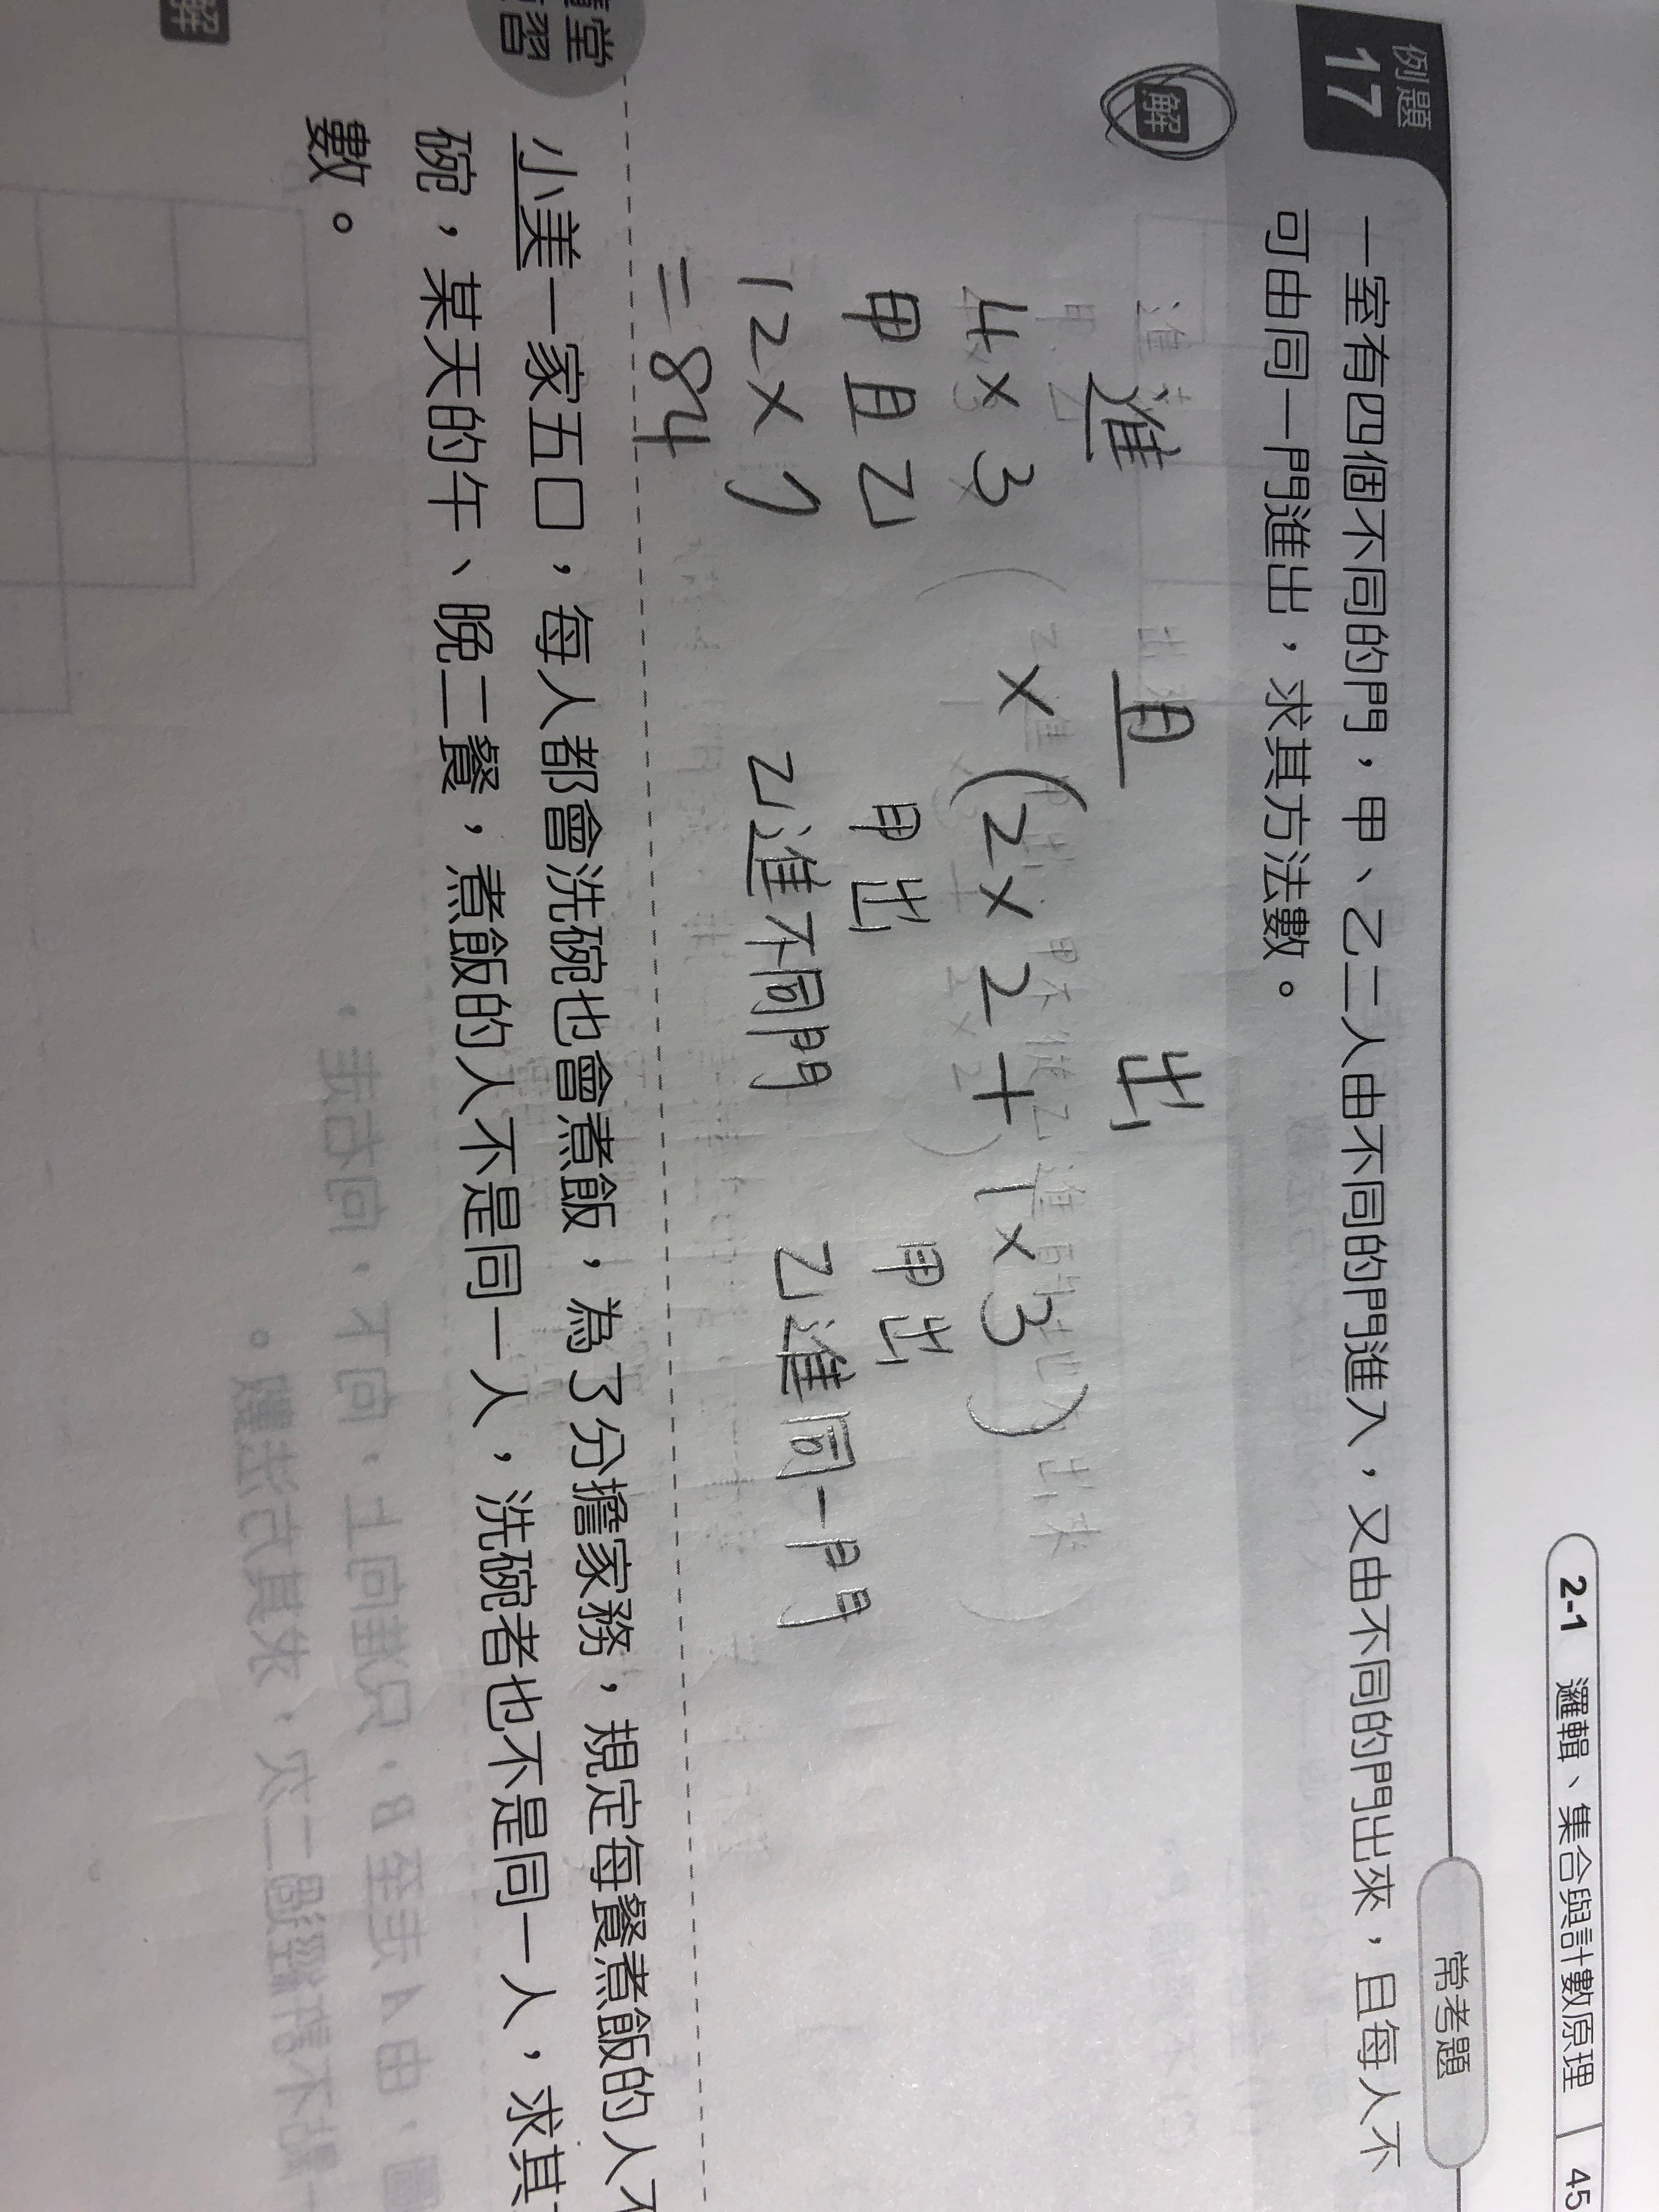 2-1 邏輯、集合與計數原理 45
常考題
例題
17
一室有四個不同的門，甲、乙二人由不同的門進入，又由不同的門出來，且每人不
可由同一門進出，求其方法數。
解
進 且 出
4×3 × (2×2+1×3)
甲且乙 甲出 甲出
乙進不同門 乙進同一門
12×7
=84
堂
習
小美一家五口，每人都會洗碗也會煮飯，為了分擔家務，規定每餐煮飯的人不
碗，某天的午、晚二餐，煮飯的人不是同一人，洗碗者也不是同一人，求其
數。
解